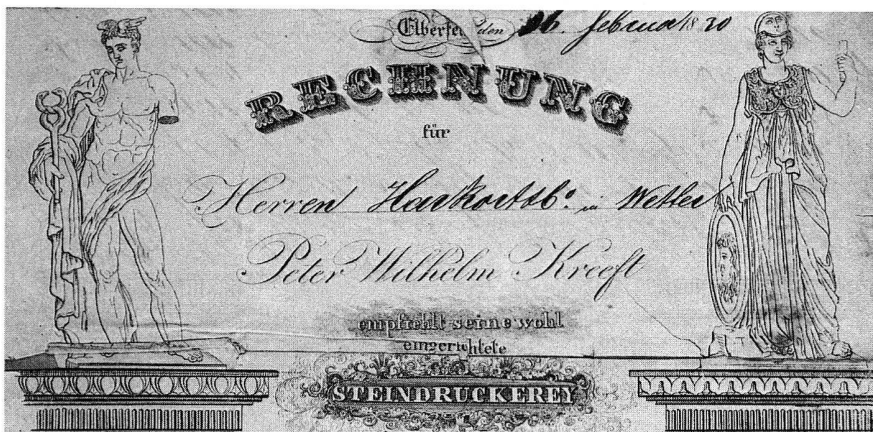 Elberfeld den 26. februar 1830
RECHNUNG
für
Herren Harkort & Co. in Wetter
Peter Wilhelm Kreeft
empfiehlt seine wohl
eingerichtete
STEINDRUCKEREY